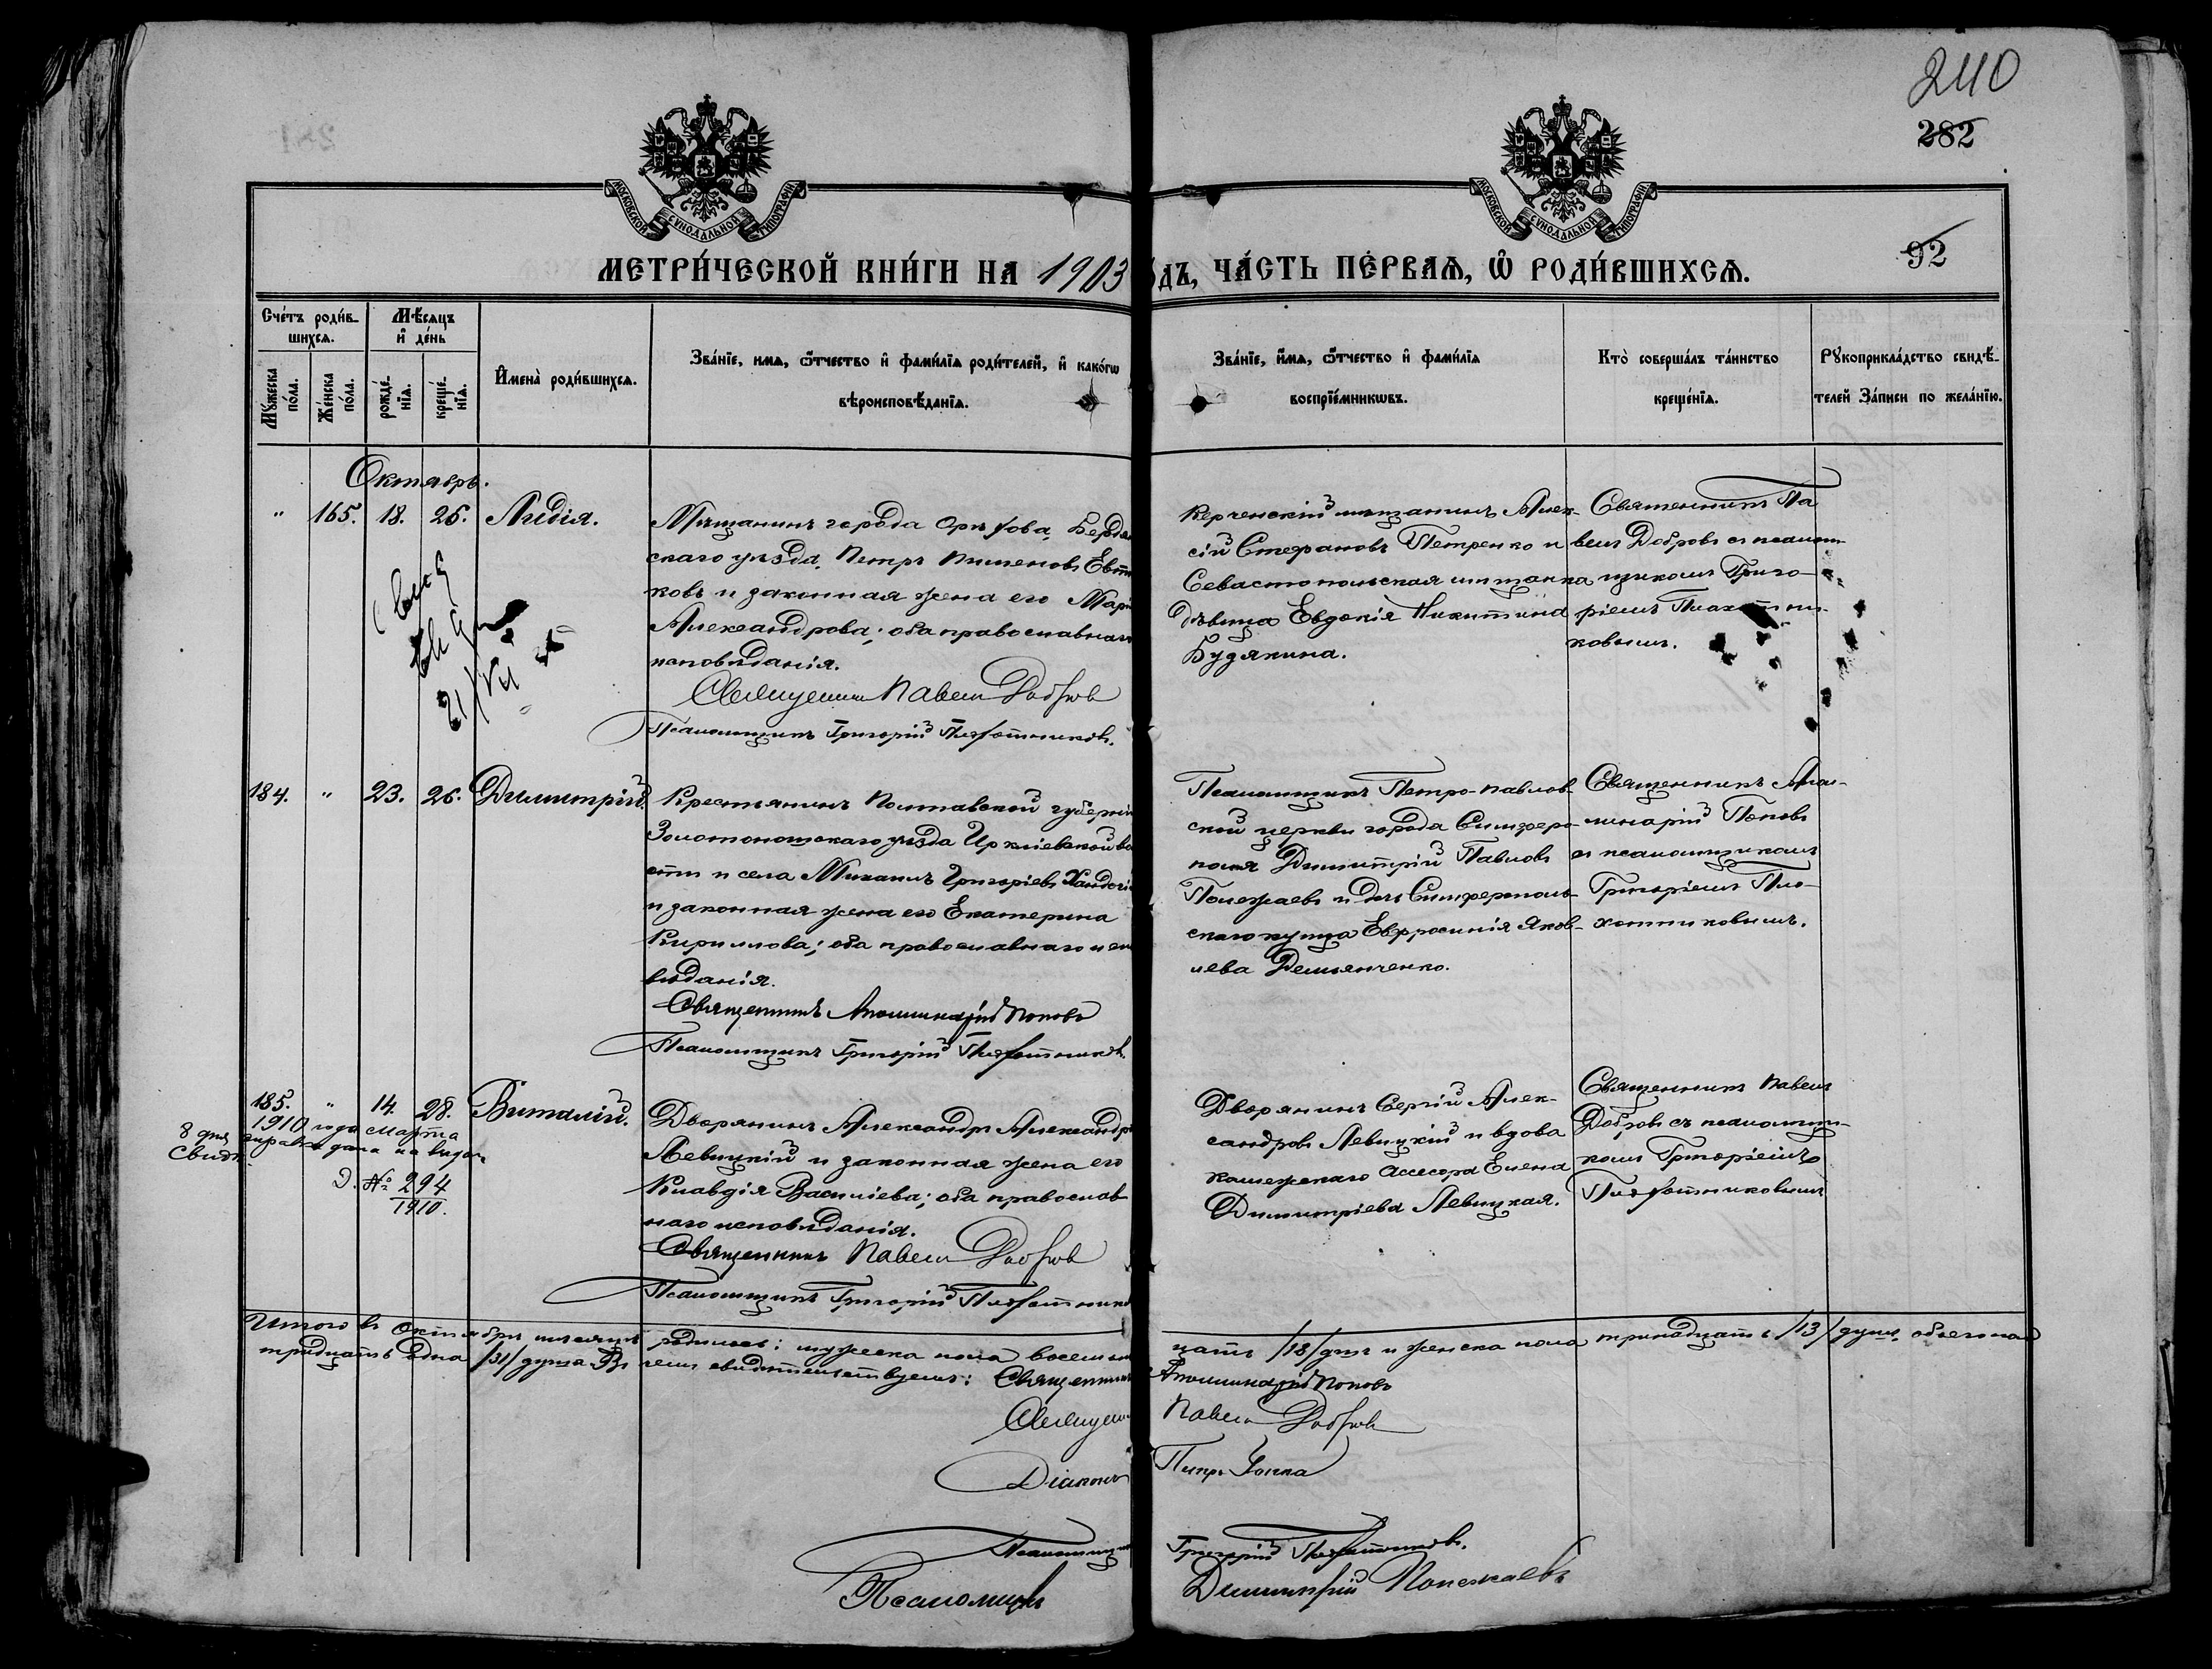 240
282
92
МОСКОВСКОЙ СѴНОДАЛЬНОЙ ТИПОГРАФІИ
МОСКОВСКОЙ СѴНОДАЛЬНОЙ ТИПОГРАФІИ
МЕТРИ́ЧЕСКОЙ КНИ́ГИ НА 1903
ДЪ, ЧА́СТЬ ПЕ́РВАѦ, Ѽ РОДИ́ВШИХСѦ.
Сче́тъ роди́в-
шихсѧ.
Мѣ́сѧцъ
и҆ де́нь
Мꙋ́жеска
по́ла.
Же́нска
по́ла.
рожде́-
нїѧ.
креще́-
нїѧ.
И҆мена̀ роди́вшихсѧ.
Зва́нїе, имѧ, ѻ҆́тчество и҆ фами́лїѧ роди́телей, и҆ како́гѡ
вѣроисповѣ́данїѧ.
Зва́нїе, и҆́мѧ, ѻ҆́тчество и҆ фами́лїѧ
воспрїе́мникѡвъ.
Кто̀ соверша́лъ та́инство
креще́нїѧ.
Рꙋкоприкла́дство свидѣ́-
телей За́писи по жела́нїю.
Октябрь.
" 165. 18. 26. Лидія.
Мѣщанинъ города Орѣхова, Бердян
скаго уѣзда, Петръ Пименовъ Евт
ковъ и законная жена его Марі
Александрова; оба православнаго
исповѣданія.
Священникъ Павелъ Добровъ
Псаломщикъ Григорій Плохотниковъ.
Керченскій мѣщанинъ Алек-
сій Стефановъ Петренко и
Севастопольская мѣщанка
дѣвица Евдокія Никитина
Будякина.
Священникъ Па
велъ Добровъ съ псалом-
щикомъ Григо-
ріемъ Плохотни-
ковымъ.
184. " 23. 26. Димитрій.
Крестьянинъ Полтавской губерніи
Золотоношскаго уѣзда Ирклиевской во
сти и села Михаилъ Григорьевъ
и законная жена его Екатерина
Кириллова; оба православнаго испо
вѣданія.
Священникъ Аполлинарій Поповъ
Псаломщикъ Григорій Плохотниковъ.
Псаломщикъ Петро-Павлов
ской церкви города Симферо-
поля Димитрій Павловъ
Полежаевъ и дочь Симферополь-
скаго купца Евфросинія Яков-
лева Демьянченко.
Священникъ Апол-
линарій Поповъ
съ псаломщикомъ
Григоріемъ Пло-
хотниковымъ.
185. " 14. 28. Виталій.
1910 года Марта
8 дня справка дана на выдачу
Свидѣт.
Д. № 294
1910.
Дворянинъ Александръ Александро
Левицкій и законная жена его
Клавдія Василіева; оба православ
наго исповѣданія.
Священникъ Павелъ Добровъ
Псаломщикъ Григорій Плохотников
Дворянинъ Сергій Алек-
сандровъ Левицкій и вдова
коллежскаго ассесора Елена
Димитріева Левицкая.
Священникъ Павелъ
Добровъ съ псаломщи-
комъ Григоріемъ
Плохотниковымъ
Итого въ Октябрѣ мѣсяцѣ родилось: мужеска пола восемьнад
цать /18/ душъ и женска пола тринадцать /13/ душъ, обоего пола
тридцать одна /31/ душа. Въ чемъ свидѣтельствуемъ: Священникъ
Аполлинарій Поповъ
Священ Павелъ Добровъ
Діаконъ Петръ
Псаломщик Григорій Плохотниковъ.
Псаломщикъ Димитрій Полежаевъ